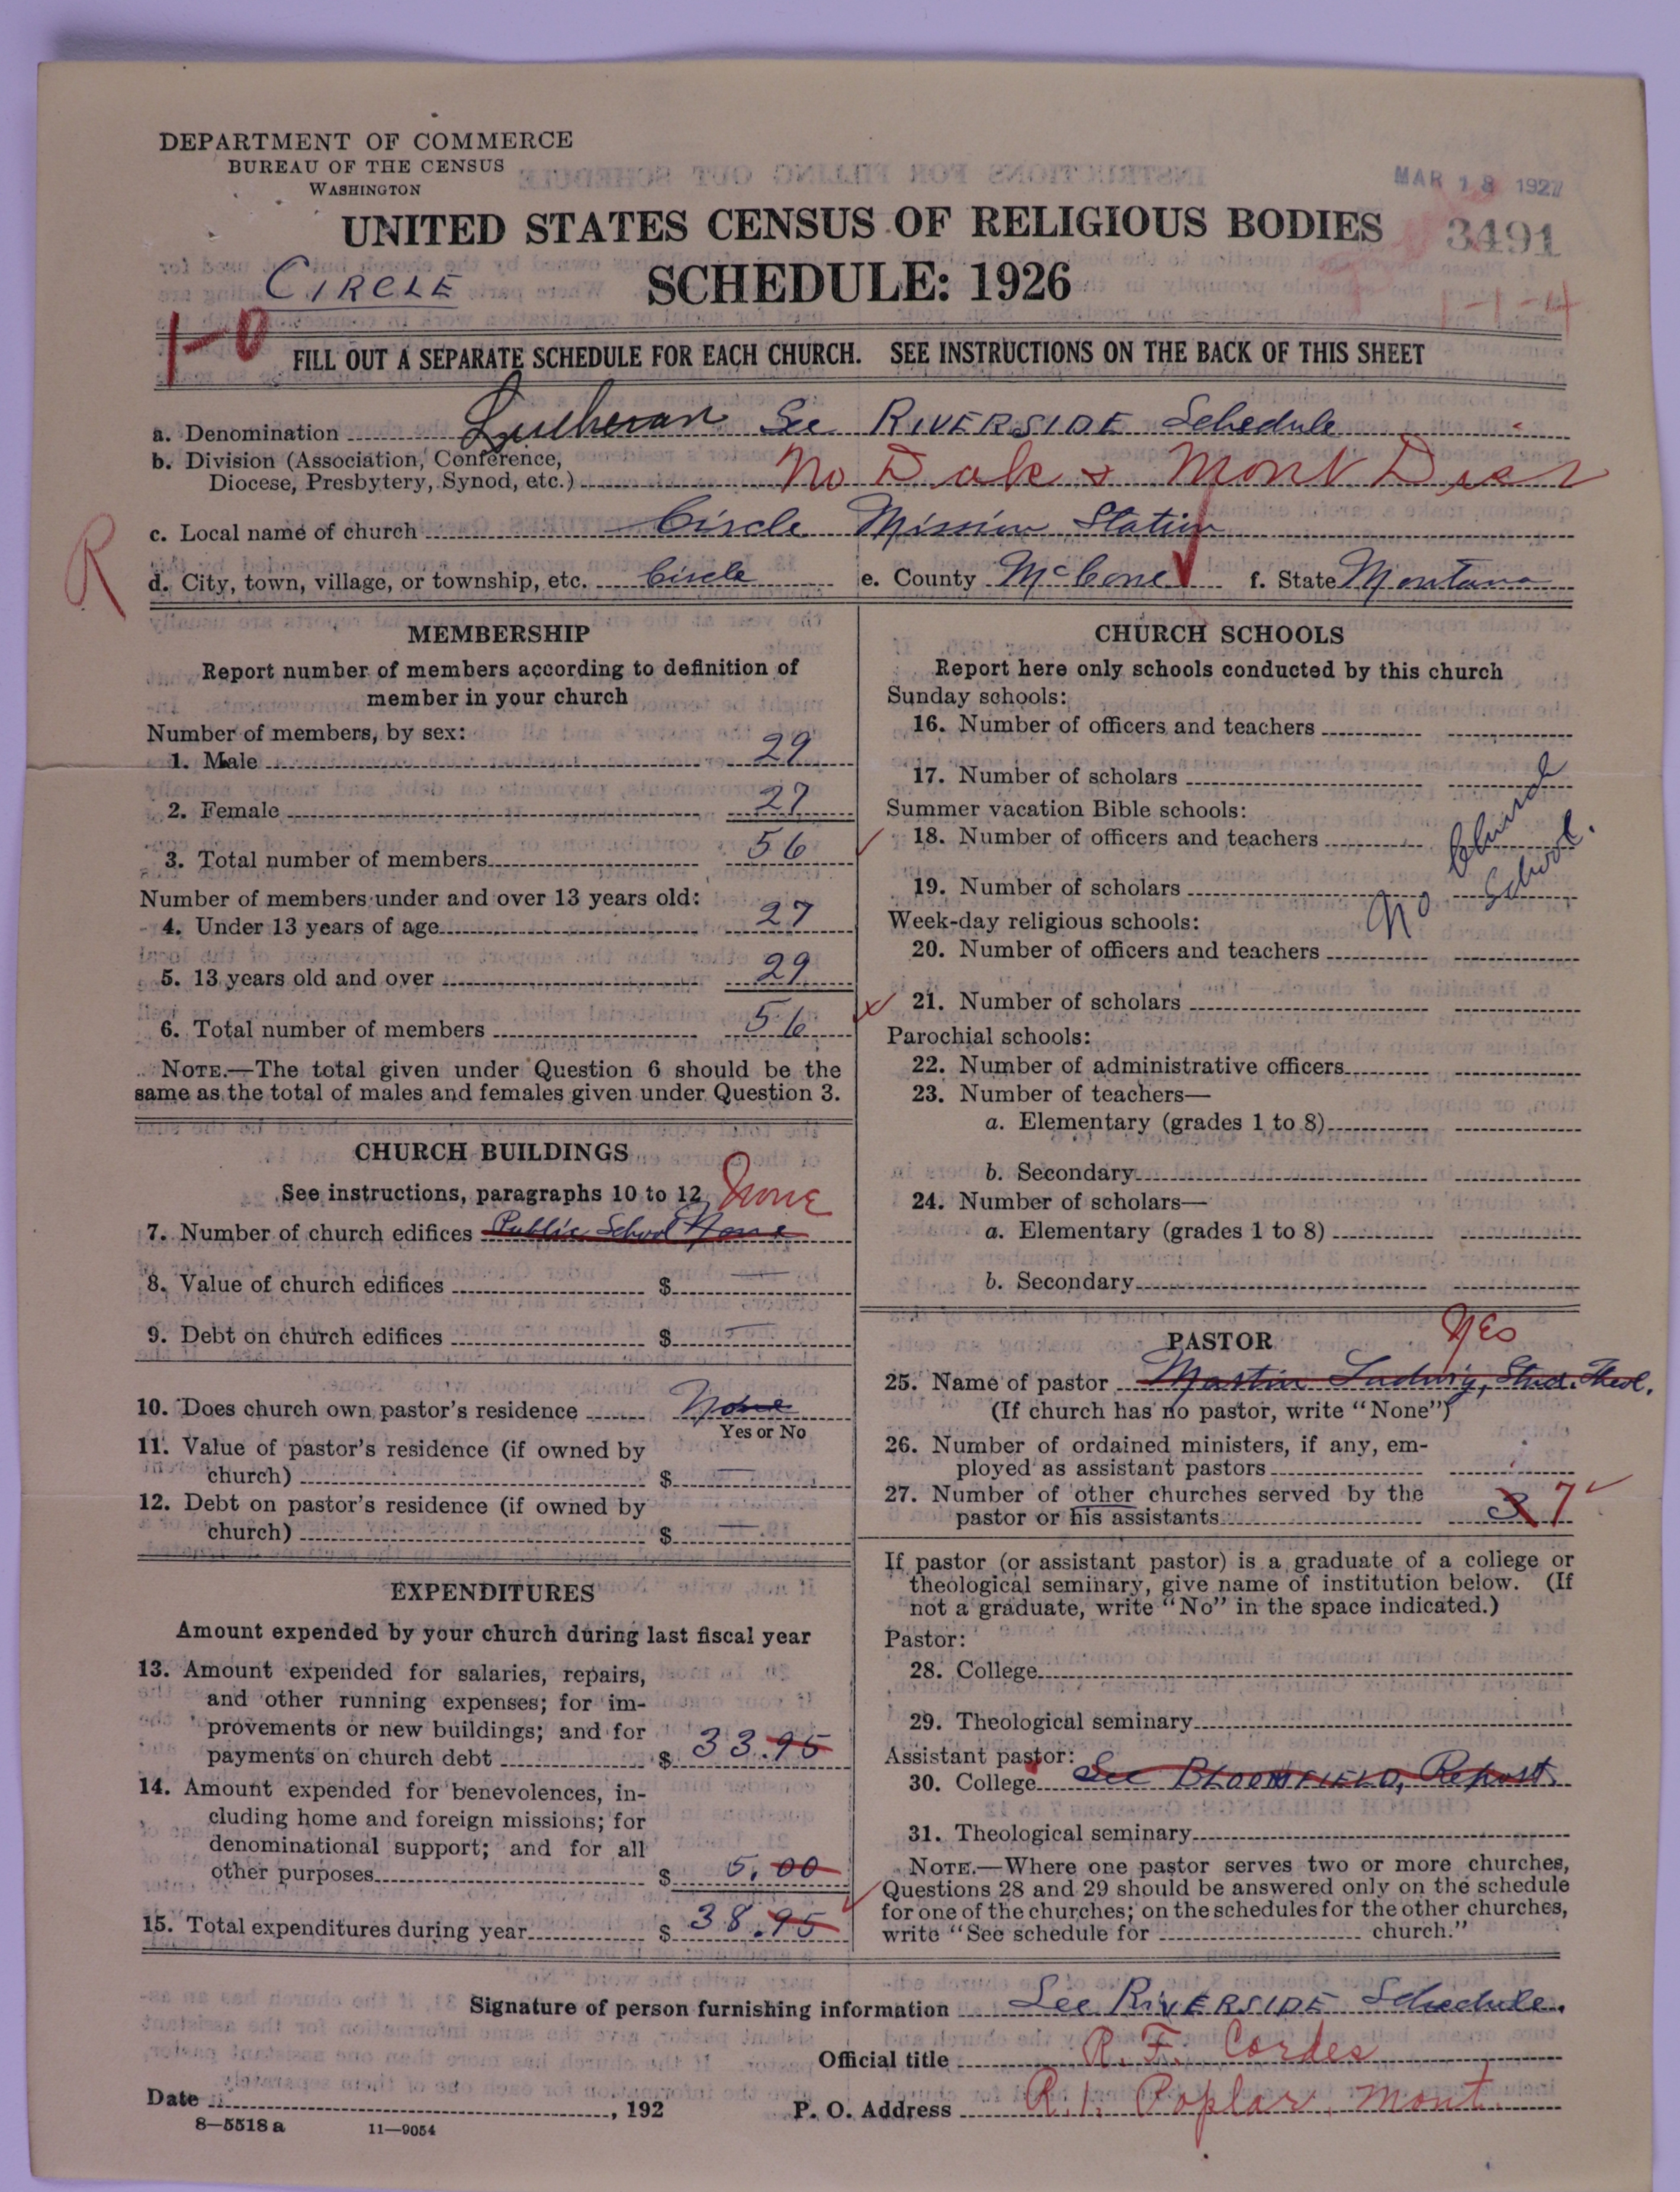 DEPARTMENT OF COMMERCE
BUREAU OF THE CENSUS
WASHINGTON
MAR 18 1927
UNITED STATES CENSUS OF RELIGIOUS BODIES
3491
CIRCLE
SCHEDULE: 1926
1-1-4
1-0
FILL OUT A SEPARATE SCHEDULE FOR EACH CHURCH. SEE INSTRUCTIONS ON THE BACK OF THIS SHEET
a. Denomination Lutheran See RIVERSIDE Schedule
b. Division (Association, Conference,
Diocese, Presbytery, Synod, etc.) No Dak & Mont Dist
R
c. Local name of church Circle Mission Station
d. City, town, village, or township, etc. Circle e. County McCone f. State Montana
MEMBERSHIP
Report number of members according to definition of
member in your church
Number of members, by sex:
1. Male 29
2. Female 27
3. Total number of members 56
Number of members under and over 13 years old:
4. Under 13 years of age 27
5. 13 years old and over 29
6. Total number of members 56
NOTE.—The total given under Question 6 should be the
same as the total of males and females given under Question 3.
CHURCH BUILDINGS
See instructions, paragraphs 10 to 12 None
7. Number of church edifices Public School None
8. Value of church edifices $ —
9. Debt on church edifices $ —
10. Does church own pastor's residence None
Yes or No
11. Value of pastor's residence (if owned by
church) $ —
12. Debt on pastor's residence (if owned by
church) $ —
EXPENDITURES
Amount expended by your church during last fiscal year
13. Amount expended for salaries, repairs,
and other running expenses; for im-
provements or new buildings; and for
payments on church debt $ 33.95
14. Amount expended for benevolences, in-
cluding home and foreign missions; for
denominational support; and for all
other purposes $ 5.00
15. Total expenditures during year $ 38.95
CHURCH SCHOOLS
Report here only schools conducted by this church
Sunday schools:
16. Number of officers and teachers
17. Number of scholars
Summer vacation Bible schools:
18. Number of officers and teachers
19. Number of scholars
No Church School.
Week-day religious schools:
20. Number of officers and teachers
21. Number of scholars
Parochial schools:
22. Number of administrative officers
23. Number of teachers—
a. Elementary (grades 1 to 8)
b. Secondary
24. Number of scholars—
a. Elementary (grades 1 to 8)
b. Secondary
PASTOR Yes
25. Name of pastor Martin Ludwig, Stud. Theol.
(If church has no pastor, write "None")
26. Number of ordained ministers, if any, em-
ployed as assistant pastors
27. Number of other churches served by the
pastor or his assistants 7
If pastor (or assistant pastor) is a graduate of a college or
theological seminary, give name of institution below. (If
not a graduate, write "No" in the space indicated.)
Pastor:
28. College
29. Theological seminary
Assistant pastor:
30. College See BLOOMFIELD, Report
31. Theological seminary
NOTE.—Where one pastor serves two or more churches,
Questions 28 and 29 should be answered only on the schedule
for one of the churches; on the schedules for the other churches,
write "See schedule for church."
Signature of person furnishing information See RIVERSIDE Schedule.
Official title R. F. Cordes
Date , 192 P. O. Address R.1. Poplar, Mont.
8—5518 a 11—9054